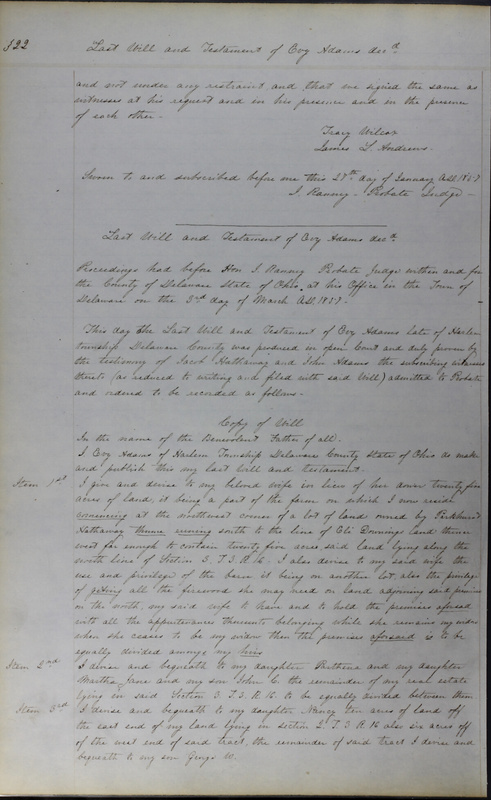 522
Last Will and Testament of Evy Adams decd
and not under any restraint and that we signed the same as
witnesses at his request and in his presence and in the presence
of each other.
Tracy Wilcox
James L. Andrews.
Sworn to and subscribed before me this 27th day of January A.D. 1857
J. Ranney - Probate Judge -
Last Will and Testament of Evy Adams decd.
Proceedings had before Hon J. Ranney Probate Judge within and for
the County of Delaware State of Ohio at his Office in the Town of
Delaware on the 3rd day of March A.D. 1857.
This day the Last Will and Testament of Evy Adams late of Harlem
township Delaware County was produced in open Court and duly proven by
the testimony of Jacob Hathaway and John Adams the subscribing witnesses
thereto (as reduced to writing and filed with said Will) admitted to Probate
and ordered to be recorded as follows.
Copy of Will
In the name of the Benevolent Father of all.
I Evy Adams of Harlem Township Delaware County State of Ohio do make
and publish this my last will and testament.
Item 1st I give and devise to my beloved wife in lieu of her dower twenty five
acres of land, it being a part of the farm on which I now reside
comencing at the northwest corner of a lot of land owned by
Hathaway thence runing south to the line of Eli Downings land thence
west far enough to contain twenty five acres said land lying along the
north line of Section 3. T. 3. R. 16. I also devise to my said wife the
use and privilege of the barn it being on another lot, also the privilege
of geting all the firewood she may need on land adjoining said premises
on the north, my said wife to have and to hold the premises aforsaid
with all the appurtenances thereunto belonging while she remains my widow
when she ceases to be my widow then the premises aforsaid is to be
equally divided amongs my heirs
Item 2nd I devise and bequeath to my daughter Bethena and my daughter
Martha Jane and my son John C. the remainder of my real estate
lying in said Section 3. T. 3. R. 16. to be equally divided between them
Item 3rd I devise and bequeath to my daughter Nancy ten acres of land off
the east end of my land lying in section 2. T. 3. R. 16 also six acres off
of the west end of said tract, the remainder of said tract I devise and
bequeath to my son George W.